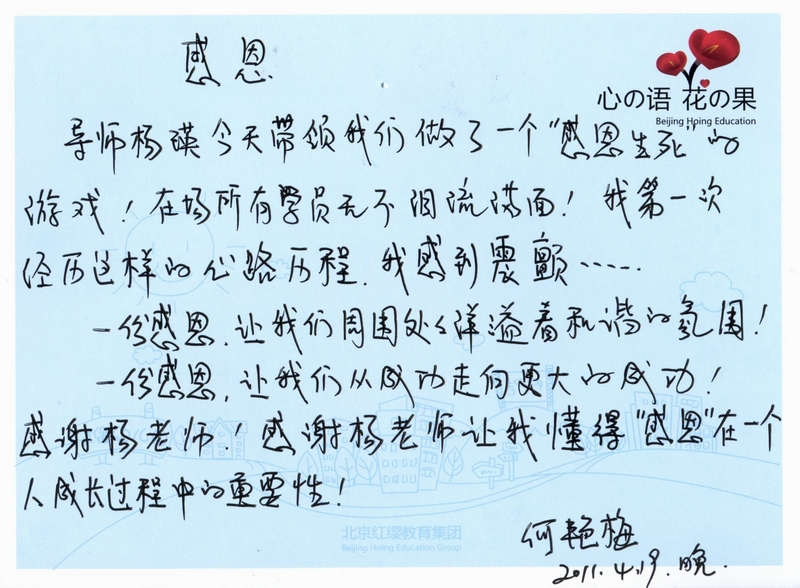 感恩
心の语 花の果
Beijing Hoing Education
导师杨瑛今天带领我们做了一个“感恩生死”的
游戏！在场所有学员无不泪流满面！我第一次
经历这样的心路历程，我感到震颤……
一份感恩，让我们周围处处洋溢着和谐的氛围！
一份感恩，让我们从成功走向更大的成功！
感谢杨老师！感谢杨老师让我懂得“感恩”在一个
人成长过程中的重要性！
北京红缨教育集团
Beijing Hoing Education Group
何艳梅
2011.4.19.晚.